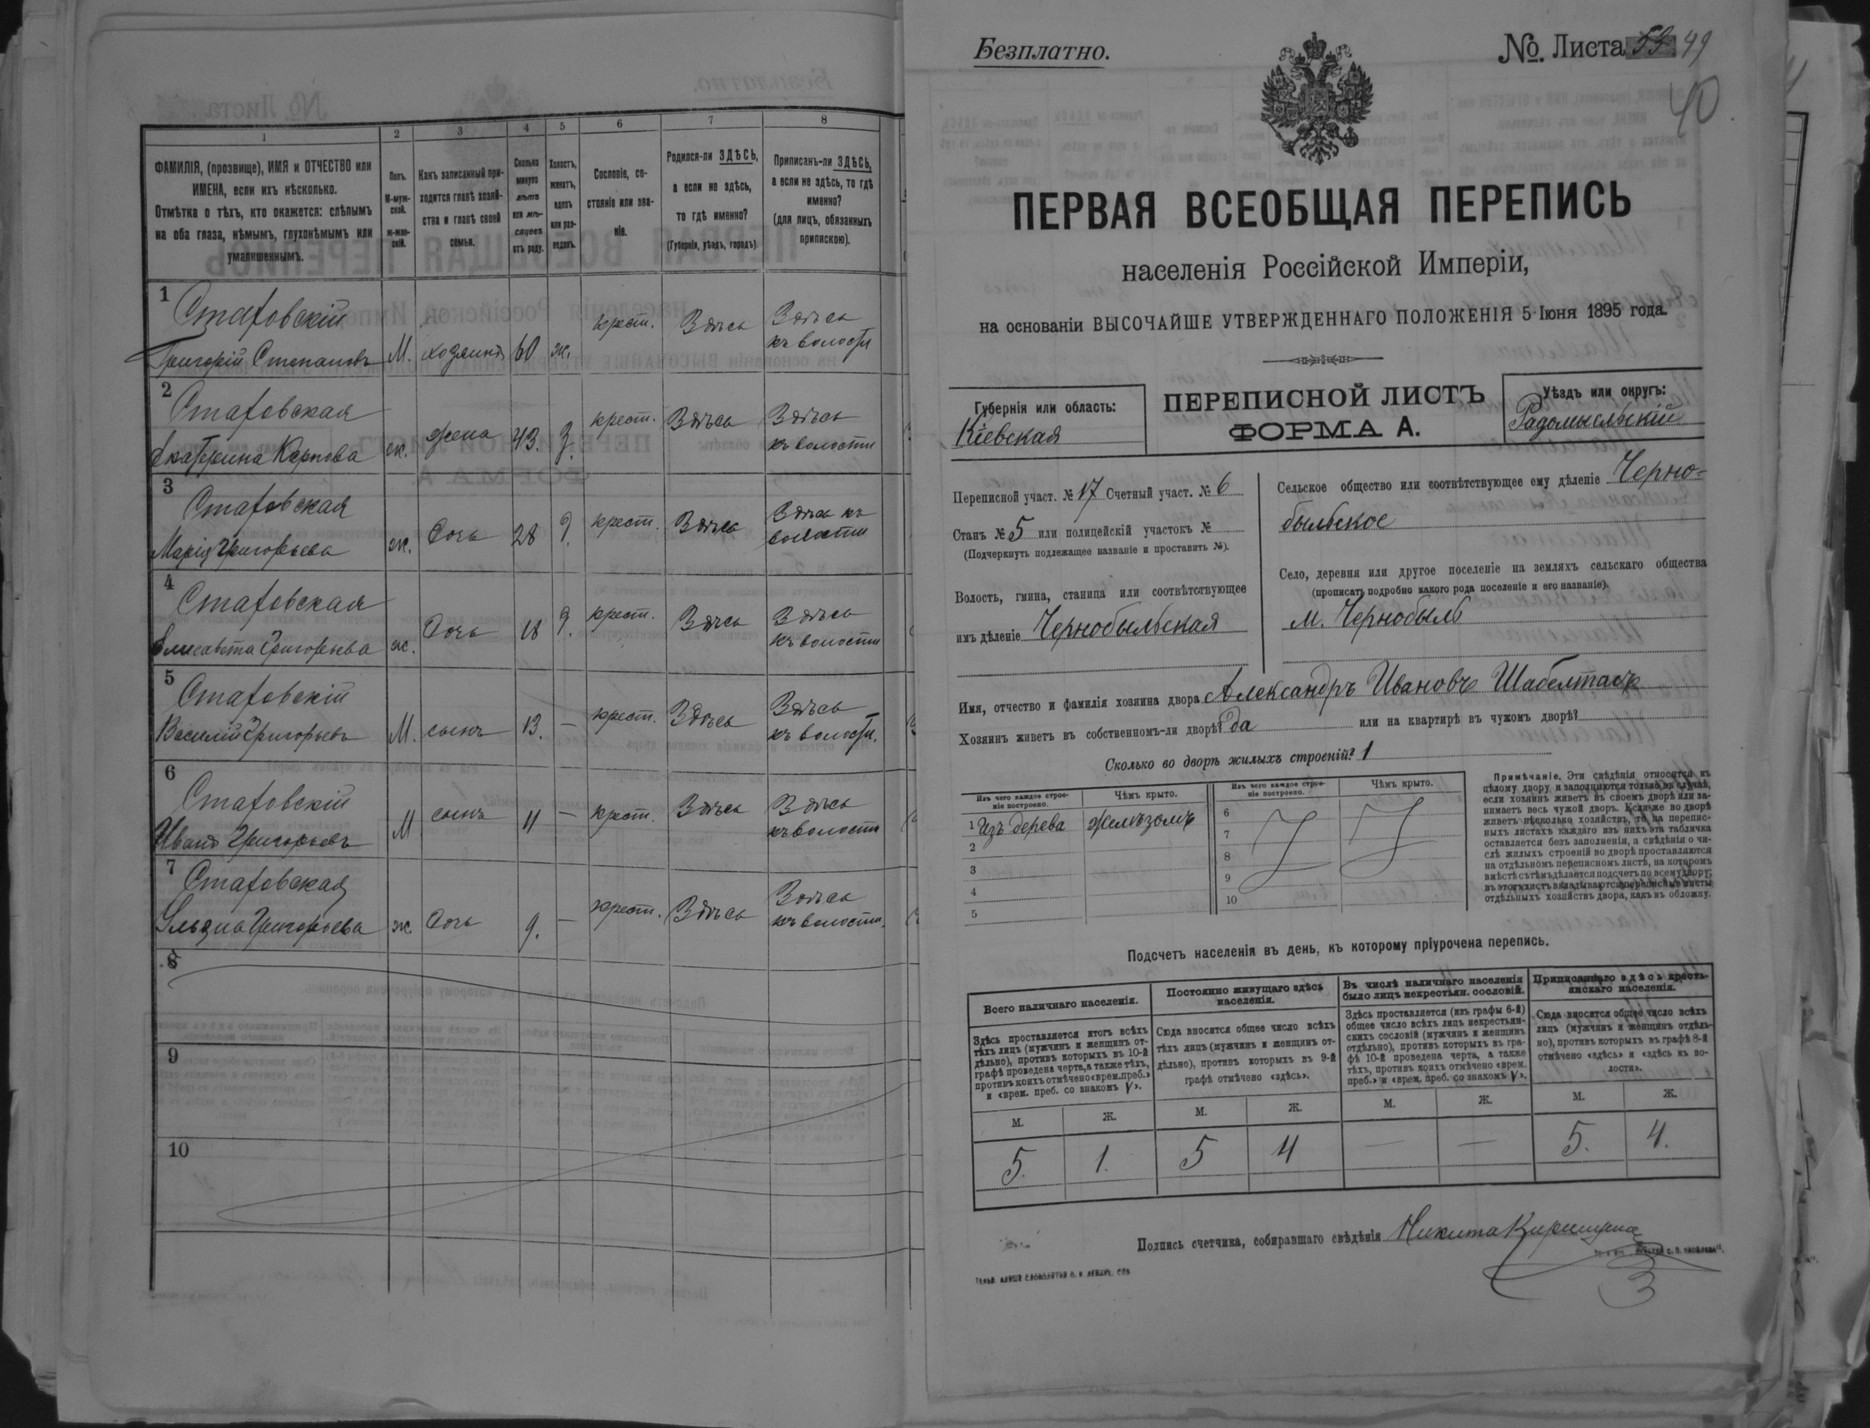 1
2
3
4
5
6
7
8
ФАМИЛІЯ, (прозвище), ИМЯ и ОТЧЕСТВО или
ИМЕНА, если ихъ нѣсколько.
Отмѣтка о тѣхъ, кто окажется: слѣпымъ
на оба глаза, нѣмымъ, глухонѣмымъ или
умалишеннымъ.
Полъ.
М-муж-
ской.
ж-жен-
скій.
Какъ записанный при-
ходится главѣ хозяй-
ства и главѣ своей
семьи.
Сколько
минуло
лѣтъ
или мѣ-
сяцевъ
отъ роду.
Холостъ,
женатъ,
вдовъ
или раз-
веденъ.
Сословіе, со-
стояніе или зва-
ніе.
Родился-ли ЗДѢСЬ,
а если не здѣсь,
то гдѣ именно?
(Губернія, уѣздъ, городъ)
Приписанъ-ли ЗДѢСЬ,
а если не здѣсь, то гдѣ
именно?
(для лицъ, обязанныхъ
припискою).
1
Стаховскій
Григорій Степановъ М. хозяинъ 60 ж. крест. Здѣсь Здѣсь
къ волости
2
Стаховская
Екатерина Карпова ж. жена 43. З. крест. Здѣсь Здѣсь
къ волости
3
Стаховская
Марія Григорьева ж. Дочь 28 д. крест. Здѣсь Здѣсь къ
волости
4
Стаховская
Елисавѣта Григорьева ж. Дочь 18 д. крест. Здѣсь Здѣсь
къ волости
5
Стаховскій
Василій Григорьевъ М. сынъ 13. — крест. Здѣсь Здѣсь
къ волости.
6
Стаховскій
Иванъ Григорьевъ М сынъ 11 — крест. Здѣсь Здѣсь
къ волости
7
Стаховская
Ульяна Григорьева ж. Дочь 9. — крест. Здѣсь Здѣсь
къ волости.
8
9
10
Безплатно.
№. Листа 49
40
ПЕРВАЯ ВСЕОБЩАЯ ПЕРЕПИСЬ
населенія Россійской Имперіи,
на основаніи ВЫСОЧАЙШЕ УТВЕРЖДЕННАГО ПОЛОЖЕНІЯ 5 Іюня 1895 года.
Губернія или область:
Кіевская
ПЕРЕПИСНОЙ ЛИСТЪ
ФОРМА А.
Уѣздъ или округъ:
Радомысльскій
Переписной участ. № 17 Счетный участ. № 6
Станъ № 5 или полицейскій участокъ №
(Подчеркнуть подлежащее названіе и проставить №).
Волость, гмина, станица или соотвѣтствующее
имъ дѣленіе Чернобыльская
Сельское общество или соотвѣтствующее ему дѣленіе Черно=
быльское
Село, деревня или другое поселеніе на земляхъ сельскаго общества
(прописать подробно какого рода поселеніе и его названіе).
м. Чернобыль
Имя, отчество и фамилія хозяина двора Александръ Ивановъ
Хозяинъ живетъ въ собственномъ-ли дворѣ? да или на квартирѣ въ чужомъ дворѣ?
Сколько во дворѣ жилыхъ строеній? 1
Изъ чего каждое строе-
ніе построено.
Чѣмъ крыто.
Изъ чего каждое строе-
ніе построено.
Чѣмъ крыто.
1 Изъ дерева желѣзомъ
2
3
4
5
6
7
8
9
10
Примѣчаніе. Эти свѣдѣнія относятся къ
цѣлому двору и заполняются только въ случаѣ,
если хозяинъ живетъ въ своемъ дворѣ или за-
нимаетъ весь чужой дворъ. Если же во дворѣ
живетъ нѣсколько хозяйствъ, то на перепис-
ныхъ листахъ каждаго изъ нихъ эта табличка
оставляется безъ заполненія, а свѣдѣнія о чи-
слѣ жилыхъ строеній во дворѣ проставляются
на отдѣльномъ переписномъ листѣ, на которомъ
вмѣстѣ съ тѣмъ дѣлается подсчетъ по всему двору;
въ этотъ листъ вкладываются переписные листы
отдѣльныхъ хозяйствъ двора, какъ въ обложку.
Подсчетъ населенія въ день, къ которому пріурочена перепись.
Всего наличнаго населенія.
Постоянно живущаго здѣсь
населенія.
Въ числѣ наличнаго населенія
было лицъ некрестьян. сословій.
Приписаннаго здѣсь кресть-
янскаго населенія.
Здѣсь проставляется итогъ всѣхъ
тѣхъ лицъ (мужчинъ и женщинъ от-
дѣльно), противъ которыхъ въ 10-й
графѣ проведена черта, а также тѣхъ,
противъ коихъ отмѣчено «врем. преб.»
и «врем. преб. со знакомъ V».
Сюда вносится общее число всѣхъ
тѣхъ лицъ (мужчинъ и женщинъ от-
дѣльно), противъ которыхъ въ 9-й
графѣ отмѣчено «здѣсь».
Здѣсь проставляется (изъ графы 6-й)
общее число всѣхъ лицъ некрестьян-
скихъ сословій (мужчинъ и женщинъ
отдѣльно), противъ которыхъ въ гра-
фѣ 10-й проведена черта, а также
тѣхъ, противъ коихъ отмѣчено «врем.
преб.» и «врем. преб. со знакомъ V».
Сюда вносится общее число всѣхъ
лицъ (мужчинъ и женщинъ отдѣль-
но), противъ которыхъ въ графѣ 8-й
отмѣчено «здѣсь» и «здѣсь къ во-
лости».
М. Ж. М. Ж. М. Ж. М. Ж.
5. 1. 5 4 — — 5. 4.
Подпись счетчика, собиравшаго свѣдѣнія Никита